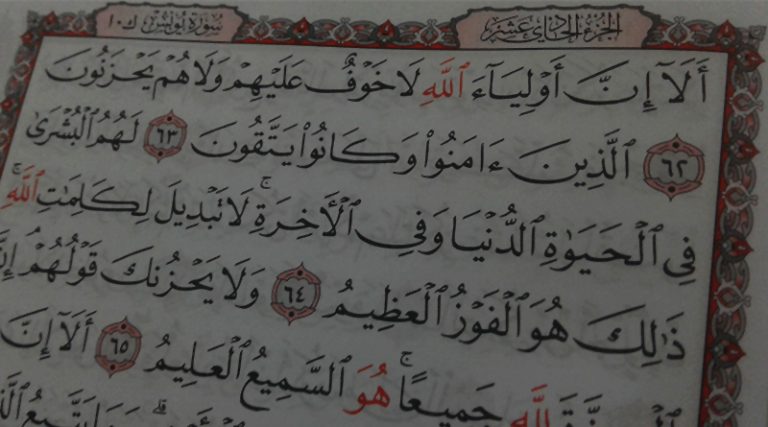 الجزء الحادي عشر سورة يونس ١٠
أَلَآ إِنَّ أَوْلِيَآءَ ٱللَّهِ لَا خَوْفٌ عَلَيْهِمْ وَلَا هُمْ يَحْزَنُونَ
٦٢ ٱلَّذِينَ ءَامَنُوا۟ وَكَانُوا۟ يَتَّقُونَ ٦٣ لَهُمُ ٱلْبُشْرَىٰ
فِى ٱلْحَيَوٰةِ ٱلدُّنْيَا وَفِى ٱلْأَخِرَةِ ۚ لَا تَبْدِيلَ لِكَلِمَٰتِ ٱللَّهِ ۚ
ذَٰلِكَ هُوَ ٱلْفَوْزُ ٱلْعَظِيمُ ٦٤ وَلَا يَحْزُنكَ قَوْلُهُمْ ۘ إِنَّ
جَمِيعًا ۚ هُوَ ٱلسَّمِيعُ ٱلْعَلِيمُ ٦٥ أَلَآ إِنَّ